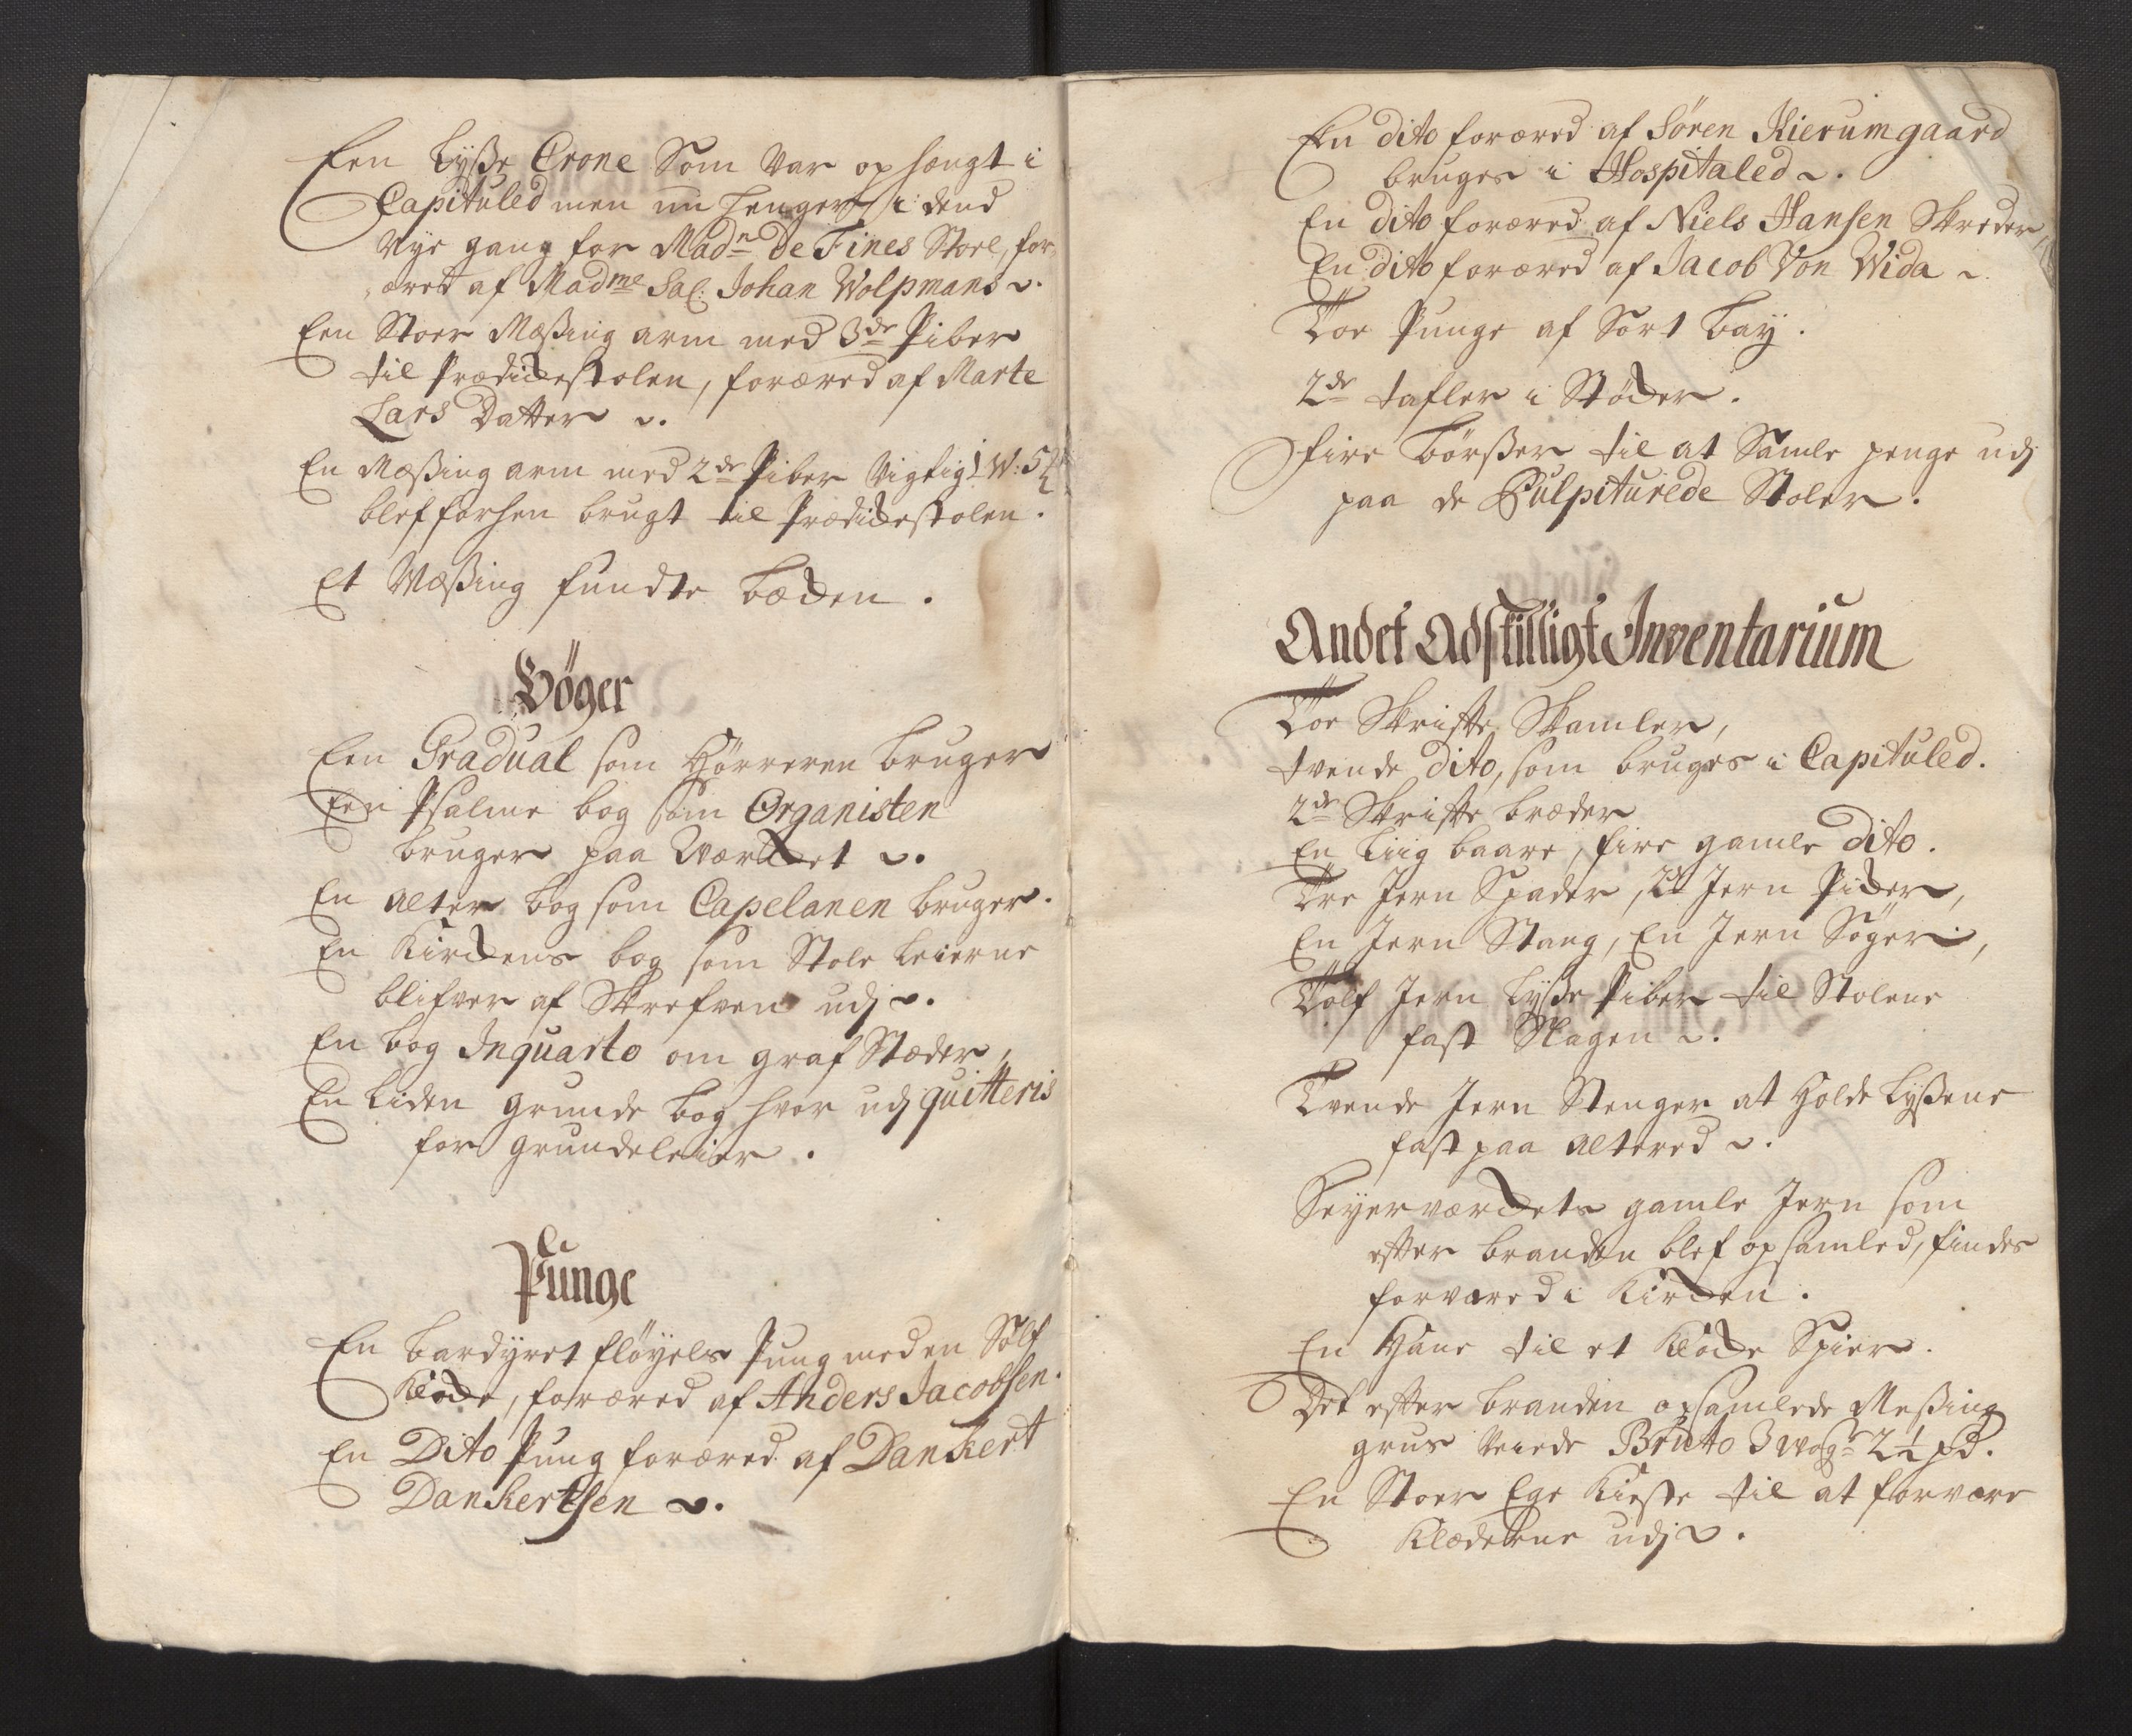 Een Lyße Crone Som var op hængt i
Capituled men nu henger i dend
Nye gang for Madn De Fines Stoel, for„
æret af Madme Sal: Johan Wolpmans ~.
Een Stoer Mæßing arm med 3de Piber
til Prædickestolen, foræred af Marte
Lars Datter ~.
En Mæßing arm med 2de Piber Vigtig 1 W: 5½
blef forhen brugt til Prædickestolen.
Et Mæßing fundte Bæcken.
Böger
Een Gradual som Hörreren bruger
Een Psalme bog som Organisten
bruger paa Værcket ~.
En Alter bog som Capelanen bruger.
En Kirckens bog som Stole Leierne
blifver af Skrefven udj ~.
En bog Inquarto om graf Stæder,
En Liden grunde bog hvor udj quitteris
for grundeleier.
Punge
En bardyret fløyels Pung med en Sølf
Klocke, foræred af Anders Jacobsen.
En Dito Pung foræred af Dankert
Dankertsen ~.
En dito foræred af Sören Kierumgaard
bruges i Hospitaled ~.
En dito foræred af Niels Hansen Skreder,
En dito foræred af Jacob Von Wida ~
Toe Punge af Sort Bay.
2de tafler i Støcker.
Fire Börßer til at Samle penge udj
paa de Pulpiturede Stoler.
Andet Adskilligt Inventarium
Toe Skrifte Skamler,
tvende dito, som bruges i Capituled.
2de Skrifte bræder
En Liig baare, fire gamle dito.
Tre Jern Spader, 2de Jern Picker,
En Jern Stang, En Jern Söger,
Tolf Jern Lyße Piber til Stolene
fast Slagen ~.
Tvende Jern Stenger at Holde Lyßene
fast paa Altered ~.
Seyerværckets gamle Jern som
efter branden blef opsamled, findes
forvared i Kircken.
En Hane til et Klocke Spier.
Det efter branden opsamlede Meßing
grus Veiede Bruto 3 Wogr 2½ pd.
En Stoer Ege Kieste til at forvare
Klæderne udj ~.